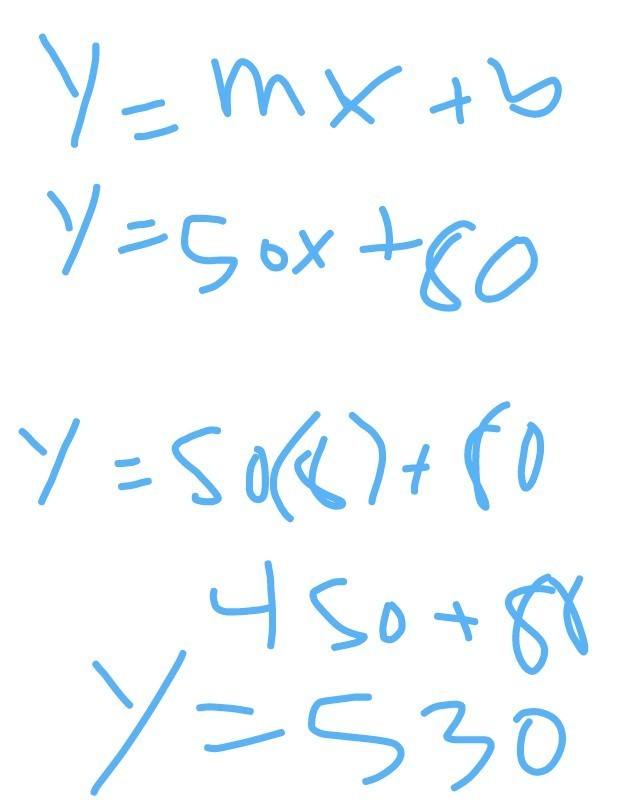 y = mx + b
y = 50x + 80
y = 50(8) + 80
450 + 80
y = 530